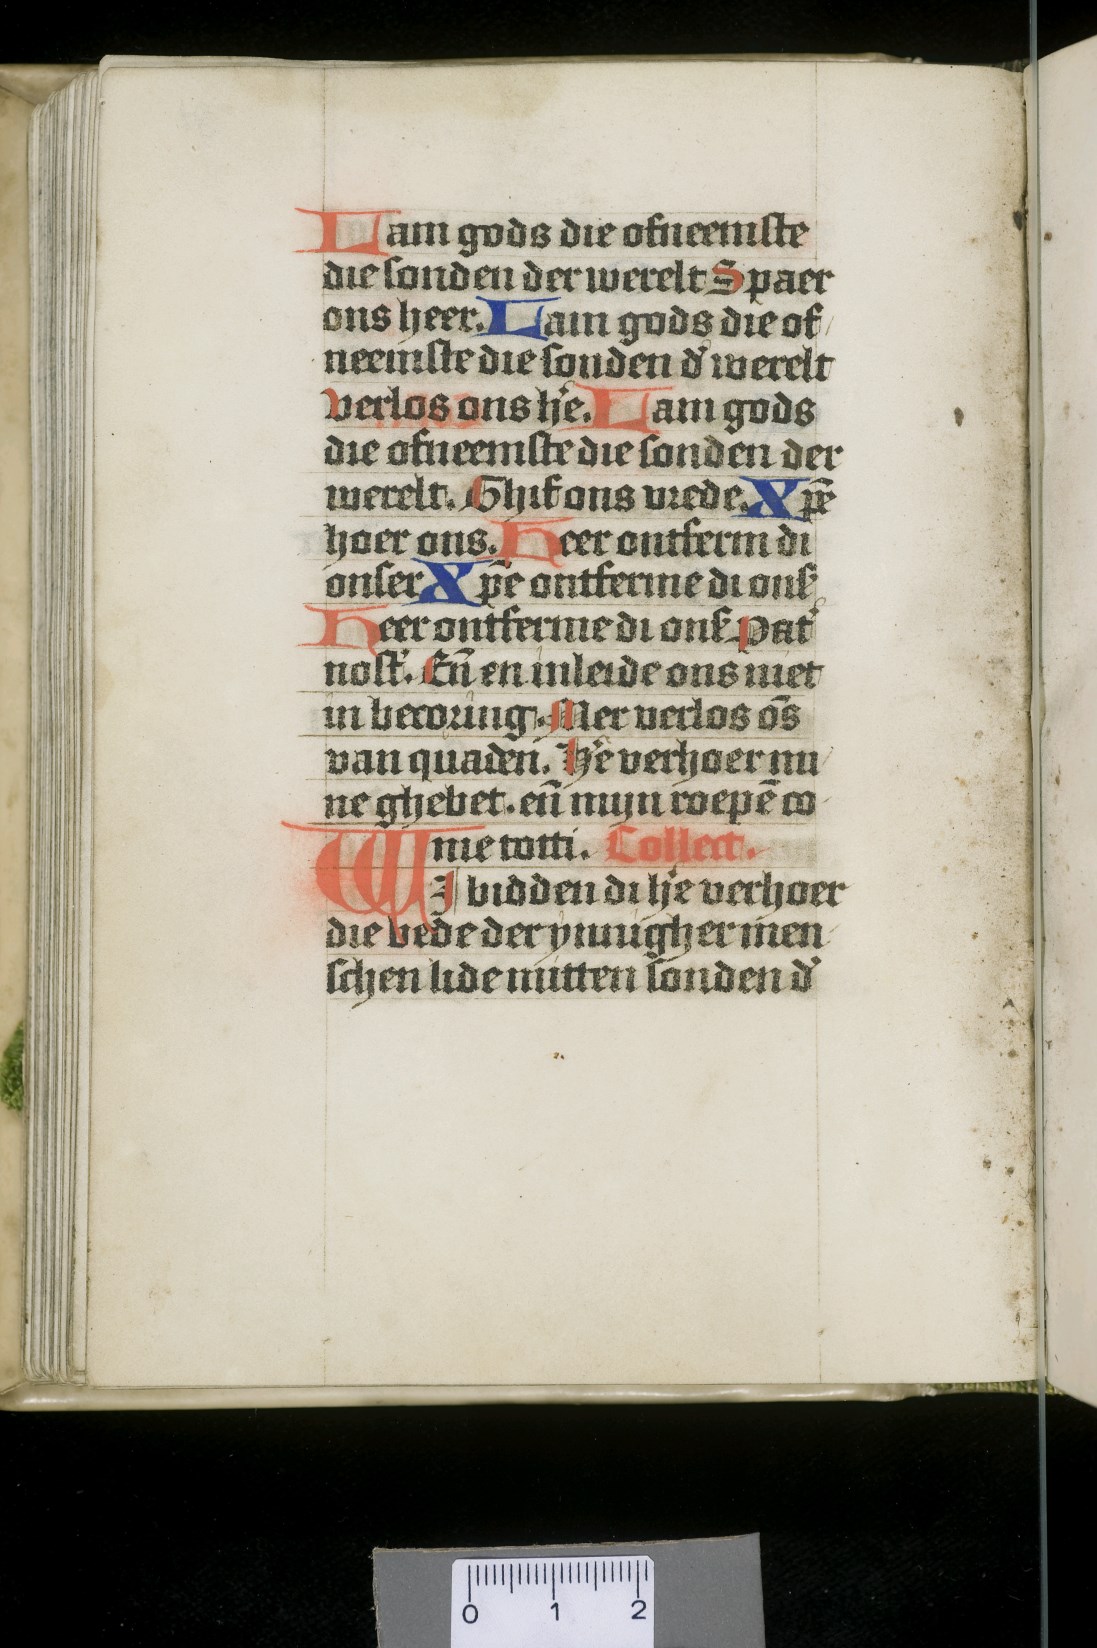 Lam gods die ofneemste
die sonden der werelt Spaer
ons heer. Lam gods die of
neemste die sonden d' werelt
verlos ons h'e. Lam gods
die ofneemste die sonden der
werelt. Ghif ons vrede. Xp̄e
hoer ons. Heer ontferm di
onser Xp̄e ontferme di ons'
Heer ontferme di ons' Pat'
nost'. En̄ en inleide ons niet
in becoring. Mer verlos ōs
van quaden. H'e verhoer mi
ne ghebet. en̄ mijn roepē co
me totti. Collect.
WI bidden di h'e verhoer
die bede der ynnigher men
schen lide mitten sonden d'
0 1 2